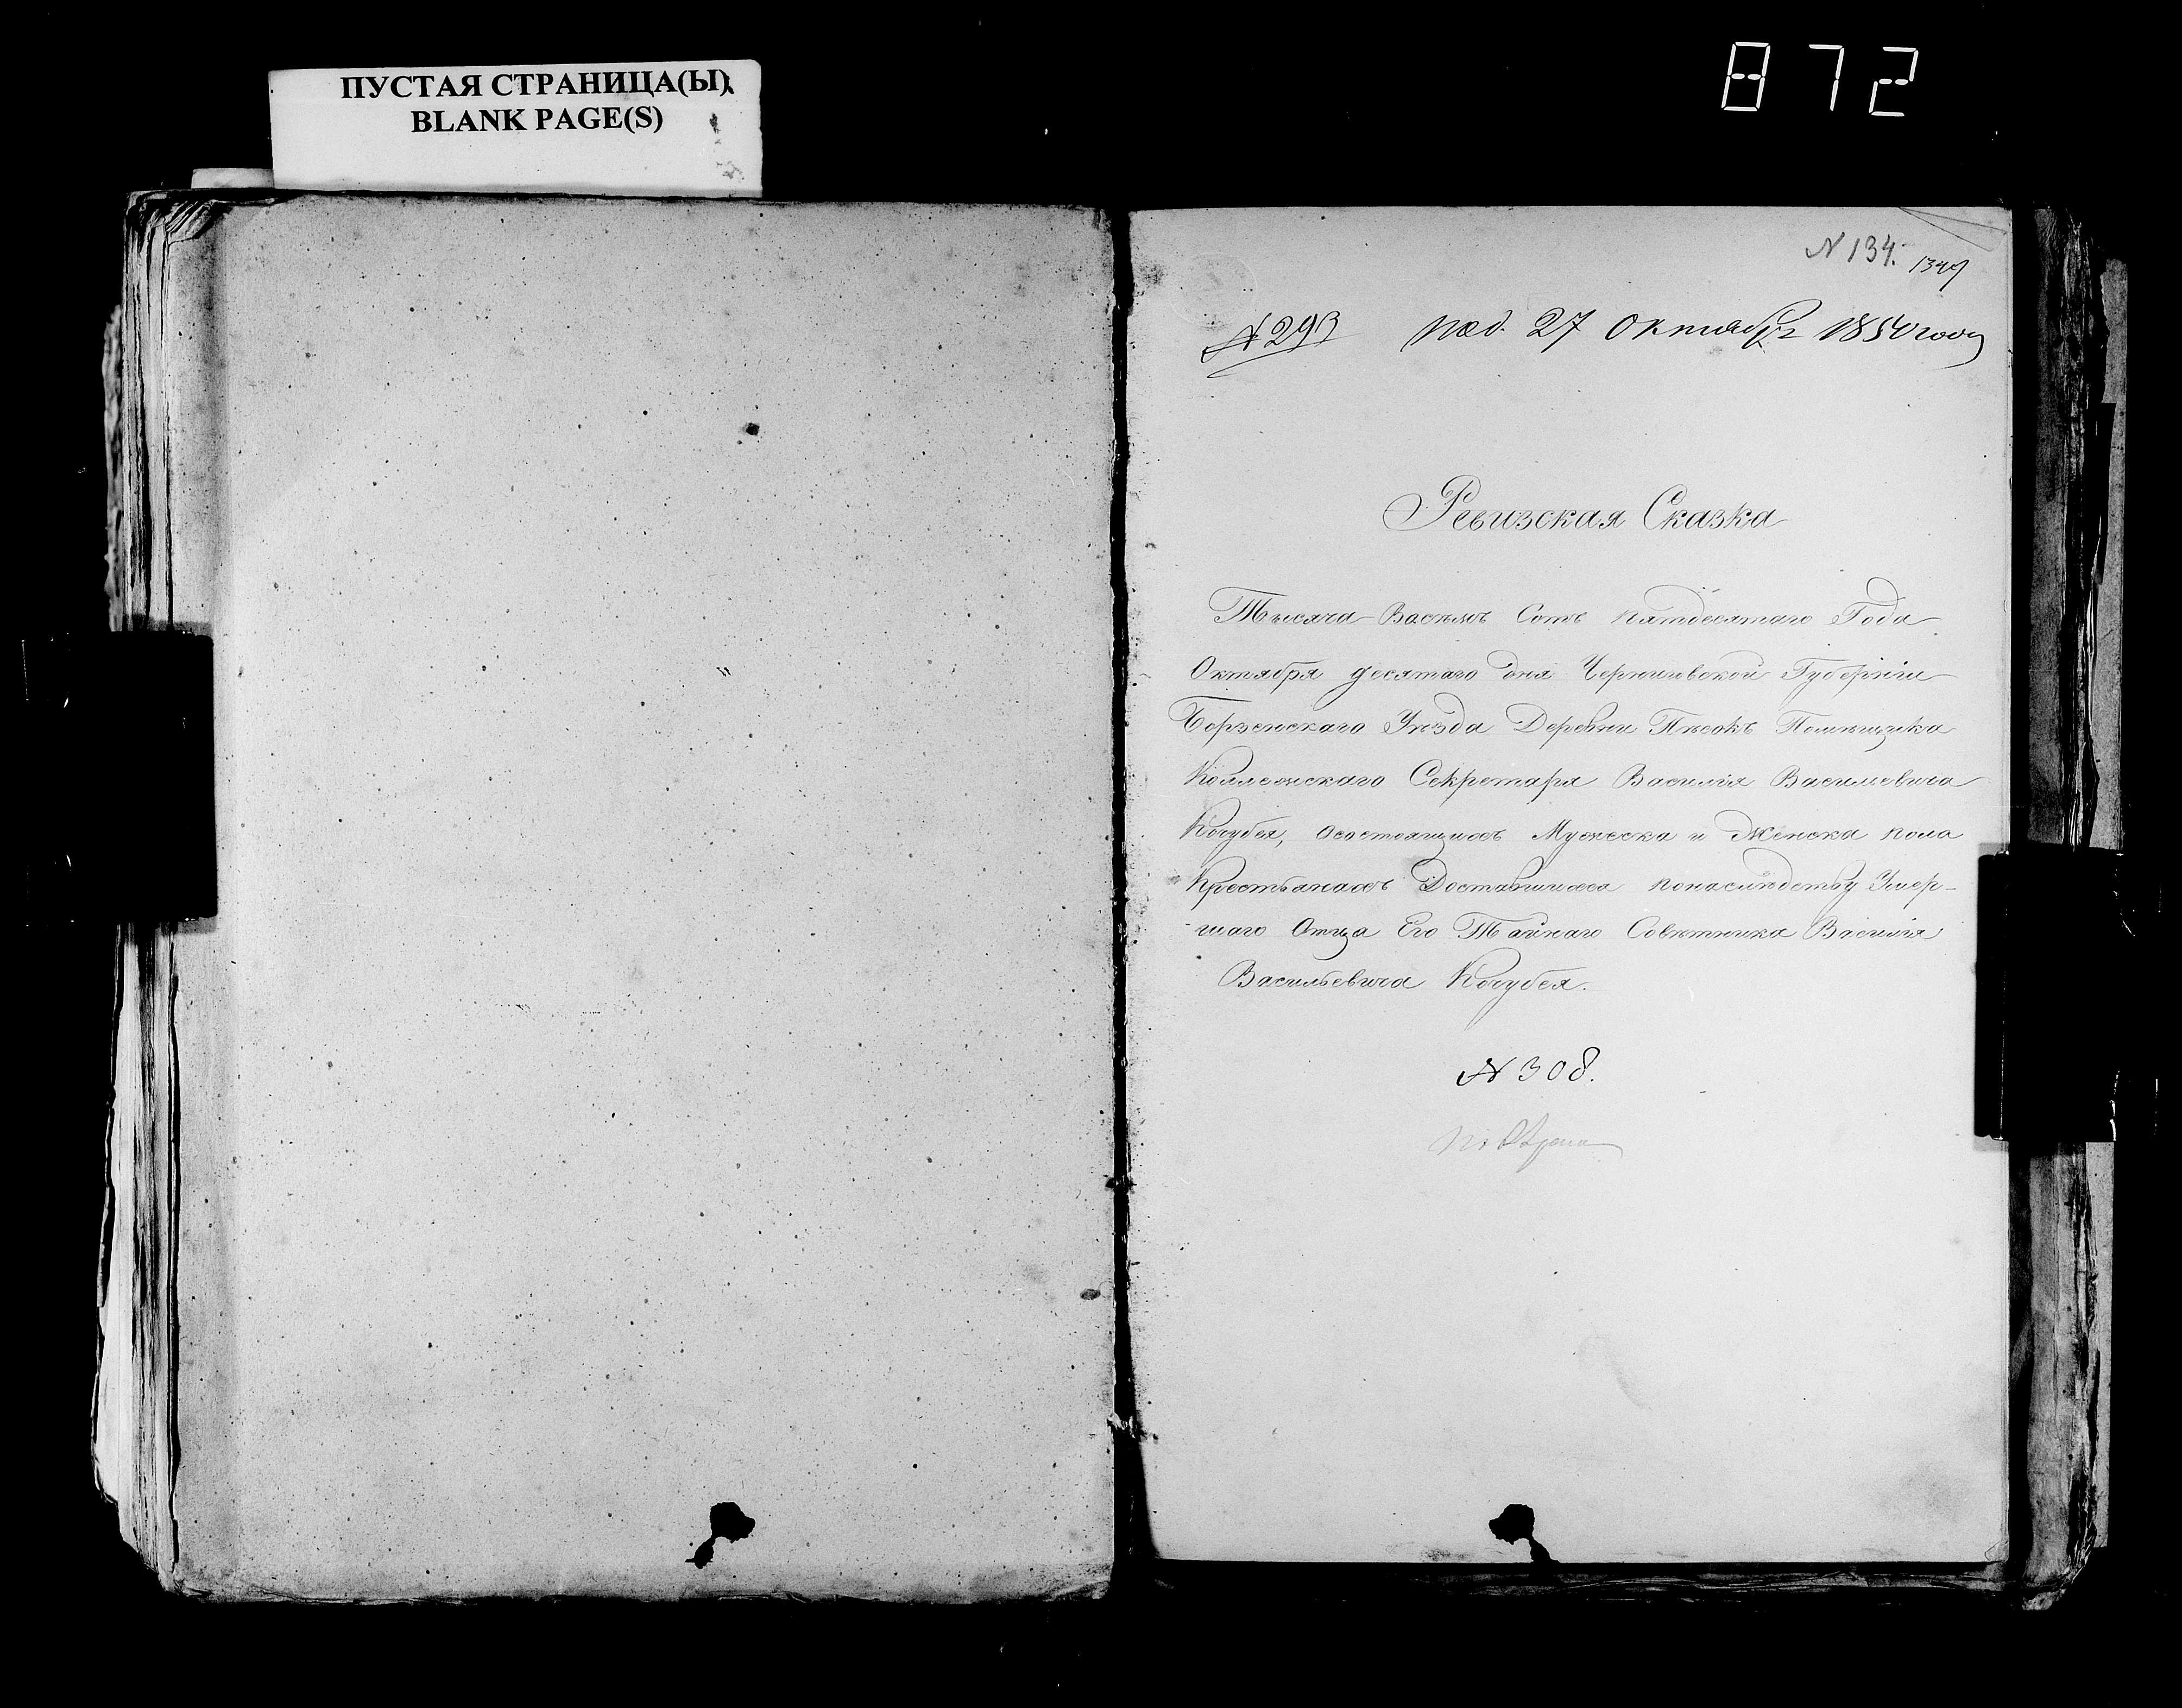 ПУСТАЯ СТРАНИЦА(Ы)
BLANK PAGE(S)
872
N 134.
N 293 под. 27 Октября 1850 года
Ревизская Сказка
Тысяча Восемь Сотъ пятдесятаго Года
Октября десятаго дня Черниговской Губерніи
Борзенскаго Уѣзда Деревни Пѣсокъ Помѣщика
Коллежскаго Секретаря Василія Василевича
Кочубея, осостоящихъ Мужеска и Женска пола
Крестьянахъ Доставшихся понаслѣдству Умер-
шаго Отца Его Тайнаго Совѣтника Василія
Васильевича Кочубея.
N 308.